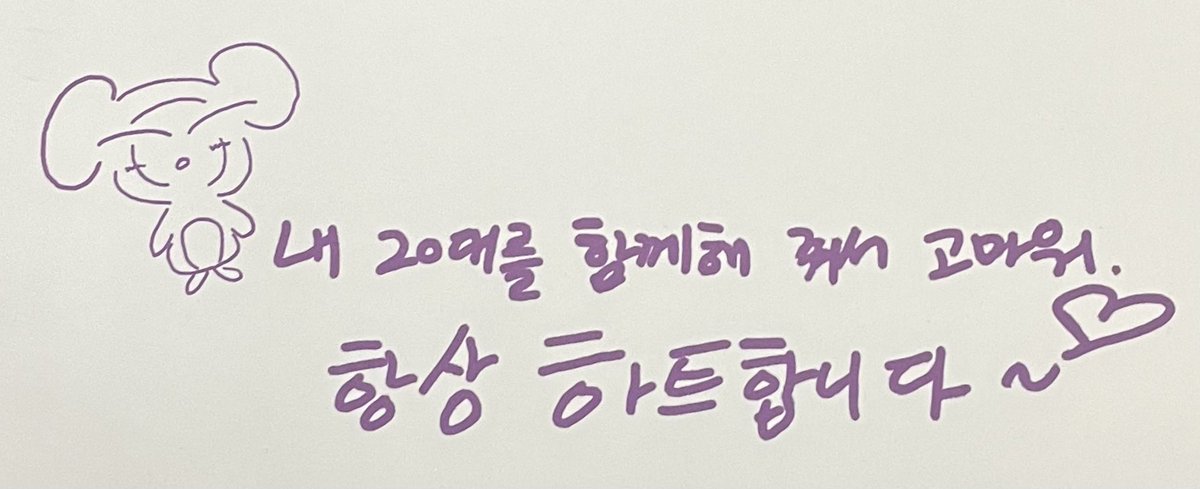 내 20대를 함께해 줘서 고마워.
항상 하트합니다~♡